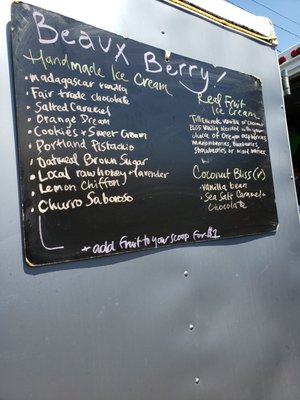 Beaux Berry
Handmade Ice Cream
• Madagascar vanilla
• Fair trade chocolate
• Salted Caramel
• Orange Dream
• Cookies + Sweet Cream
• Portland Pistachio
• Oatmeal Brown Sugar
• Local raw honey + lavender
• Lemon Chiffon
• Churro Saboroso
+ add fruit to your scoop for $1
Real Fruit
Ice Cream
Tillamook vanilla or coconut
bliss vanilla blended with your
choice of Oregon raspberries
marionberries, blueberries,
strawberries or mixed berries
Coconut Bliss (v)
• vanilla bean
• Sea Salt Caramel +
chocolate